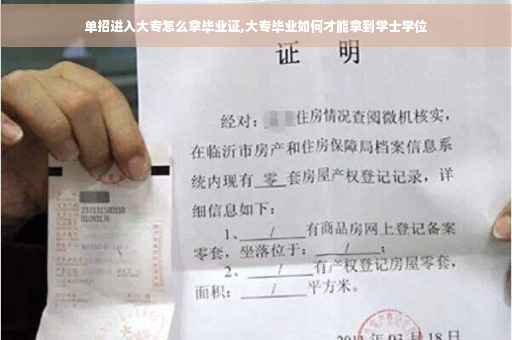 单招进入大专怎么拿毕业证,大专毕业如何才能拿到学士学位
证 明
经对： 住房情况查阅微机核实，
在临沂市房产和住房保障局档案信息系
统内现有 零 套房屋产权登记记录，详
细信息如下：
1、 / 有商品房网上登记备案
零套，坐落位于： / ；
2、 / 有产权登记房屋零套，
面积： / 平方米。
03 月 18 日